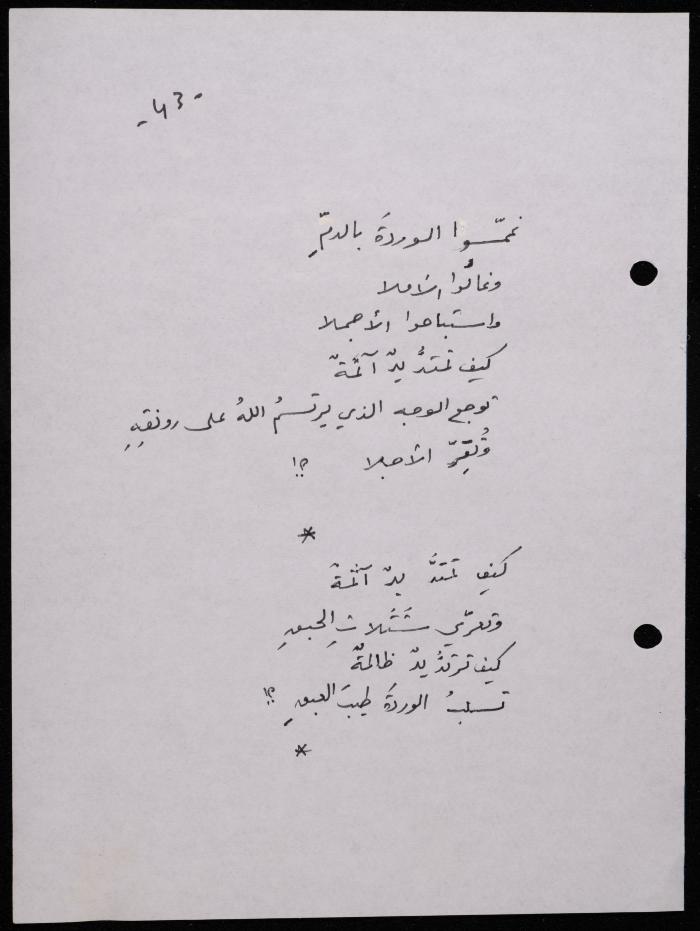 -43-
غمّسوا الوردةَ بالدمِّ
وغالُوا الأملا
واستباحوا الأجملا
كيف تمتدُّ يدٌ آثمةٌ
توجع الوجه الذي يرتسمُ اللهُ على رونقِهِ
وتُعرّي
؟!
*
كيف تمتدُّ يدٌ آثمةٌ
وتعرّي شَتَلاتِ الحبقِ
كيف ترتدُّ يدٌ ظالمةٌ
تسلبُ الوردةَ طيبَ العبقِ ؟!
*